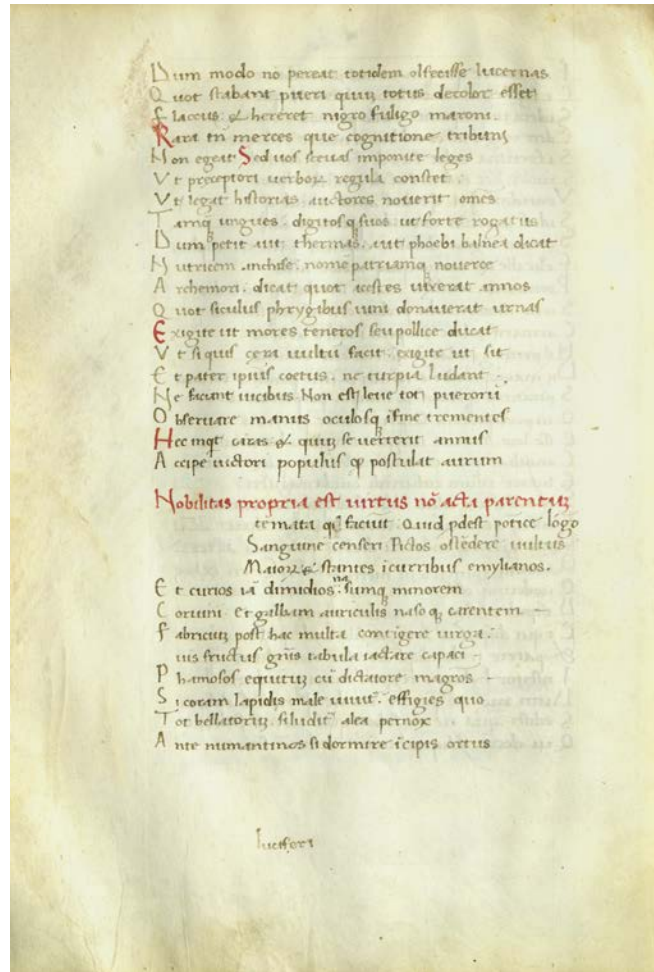 Dum modo no pereat totidem olfecisse lucernas
Quot stabant pueri quuz totus decolor esset
flaccus & hereret nigro fuligo maroni.
Rara tn merces que cognitione tribuni
Non egeat Sed uos seuas imponite leges
Vt preceptori uerboꝝ regula constet.
Vt legat historias auctores nouerit omes
Tamqͣ ungues. digitosqꝫ suos ut forte rogatus
Dum petit aut thermas. aut phoebi balnea dicat
Nutricem anchise. nome patriamqꝫ nouerce
Archemori. dicat quot acestes uixerat annos
Quot siculus phrygibus uini donauerat urnas
Exigite ut mores teneros seu pollice ducat
Vt si quis cera uultu facit. exigite ut sit
Et pater ipius coetus. ne turpia ludant.
Ne faciant uicibus. Non est leue tot puerorū
Obseruare manus oculosqꝫ ī fine trementes
Hec inqt curas & quuz se uerterit annus
Accipe uictori populus qͩ postulat aurum
Nobilitas propria est uirtus nō acta parentuz
temata qͥd faciūt. Quid pdest pōtice lōgo
Sanguine censeri Pictos ostēdere uultus
Maioꝝ & stantes ī curribus emylianos.
Et curios iā dimidios. sumqꝫ minorem
Coruini Et galbam auriculis nasoqꝫ carentem
fabriciuz post hac multa contigere uirga.
uis fructus gnis tabula iactare capaci
Phamosos equituz cū dictatore magros
Si coram lapidis male uiuit. effigies quo
Tot bellatoruz. si ludit alea pernox
Ante numantinos si dormire īcipis ortus
luciferi